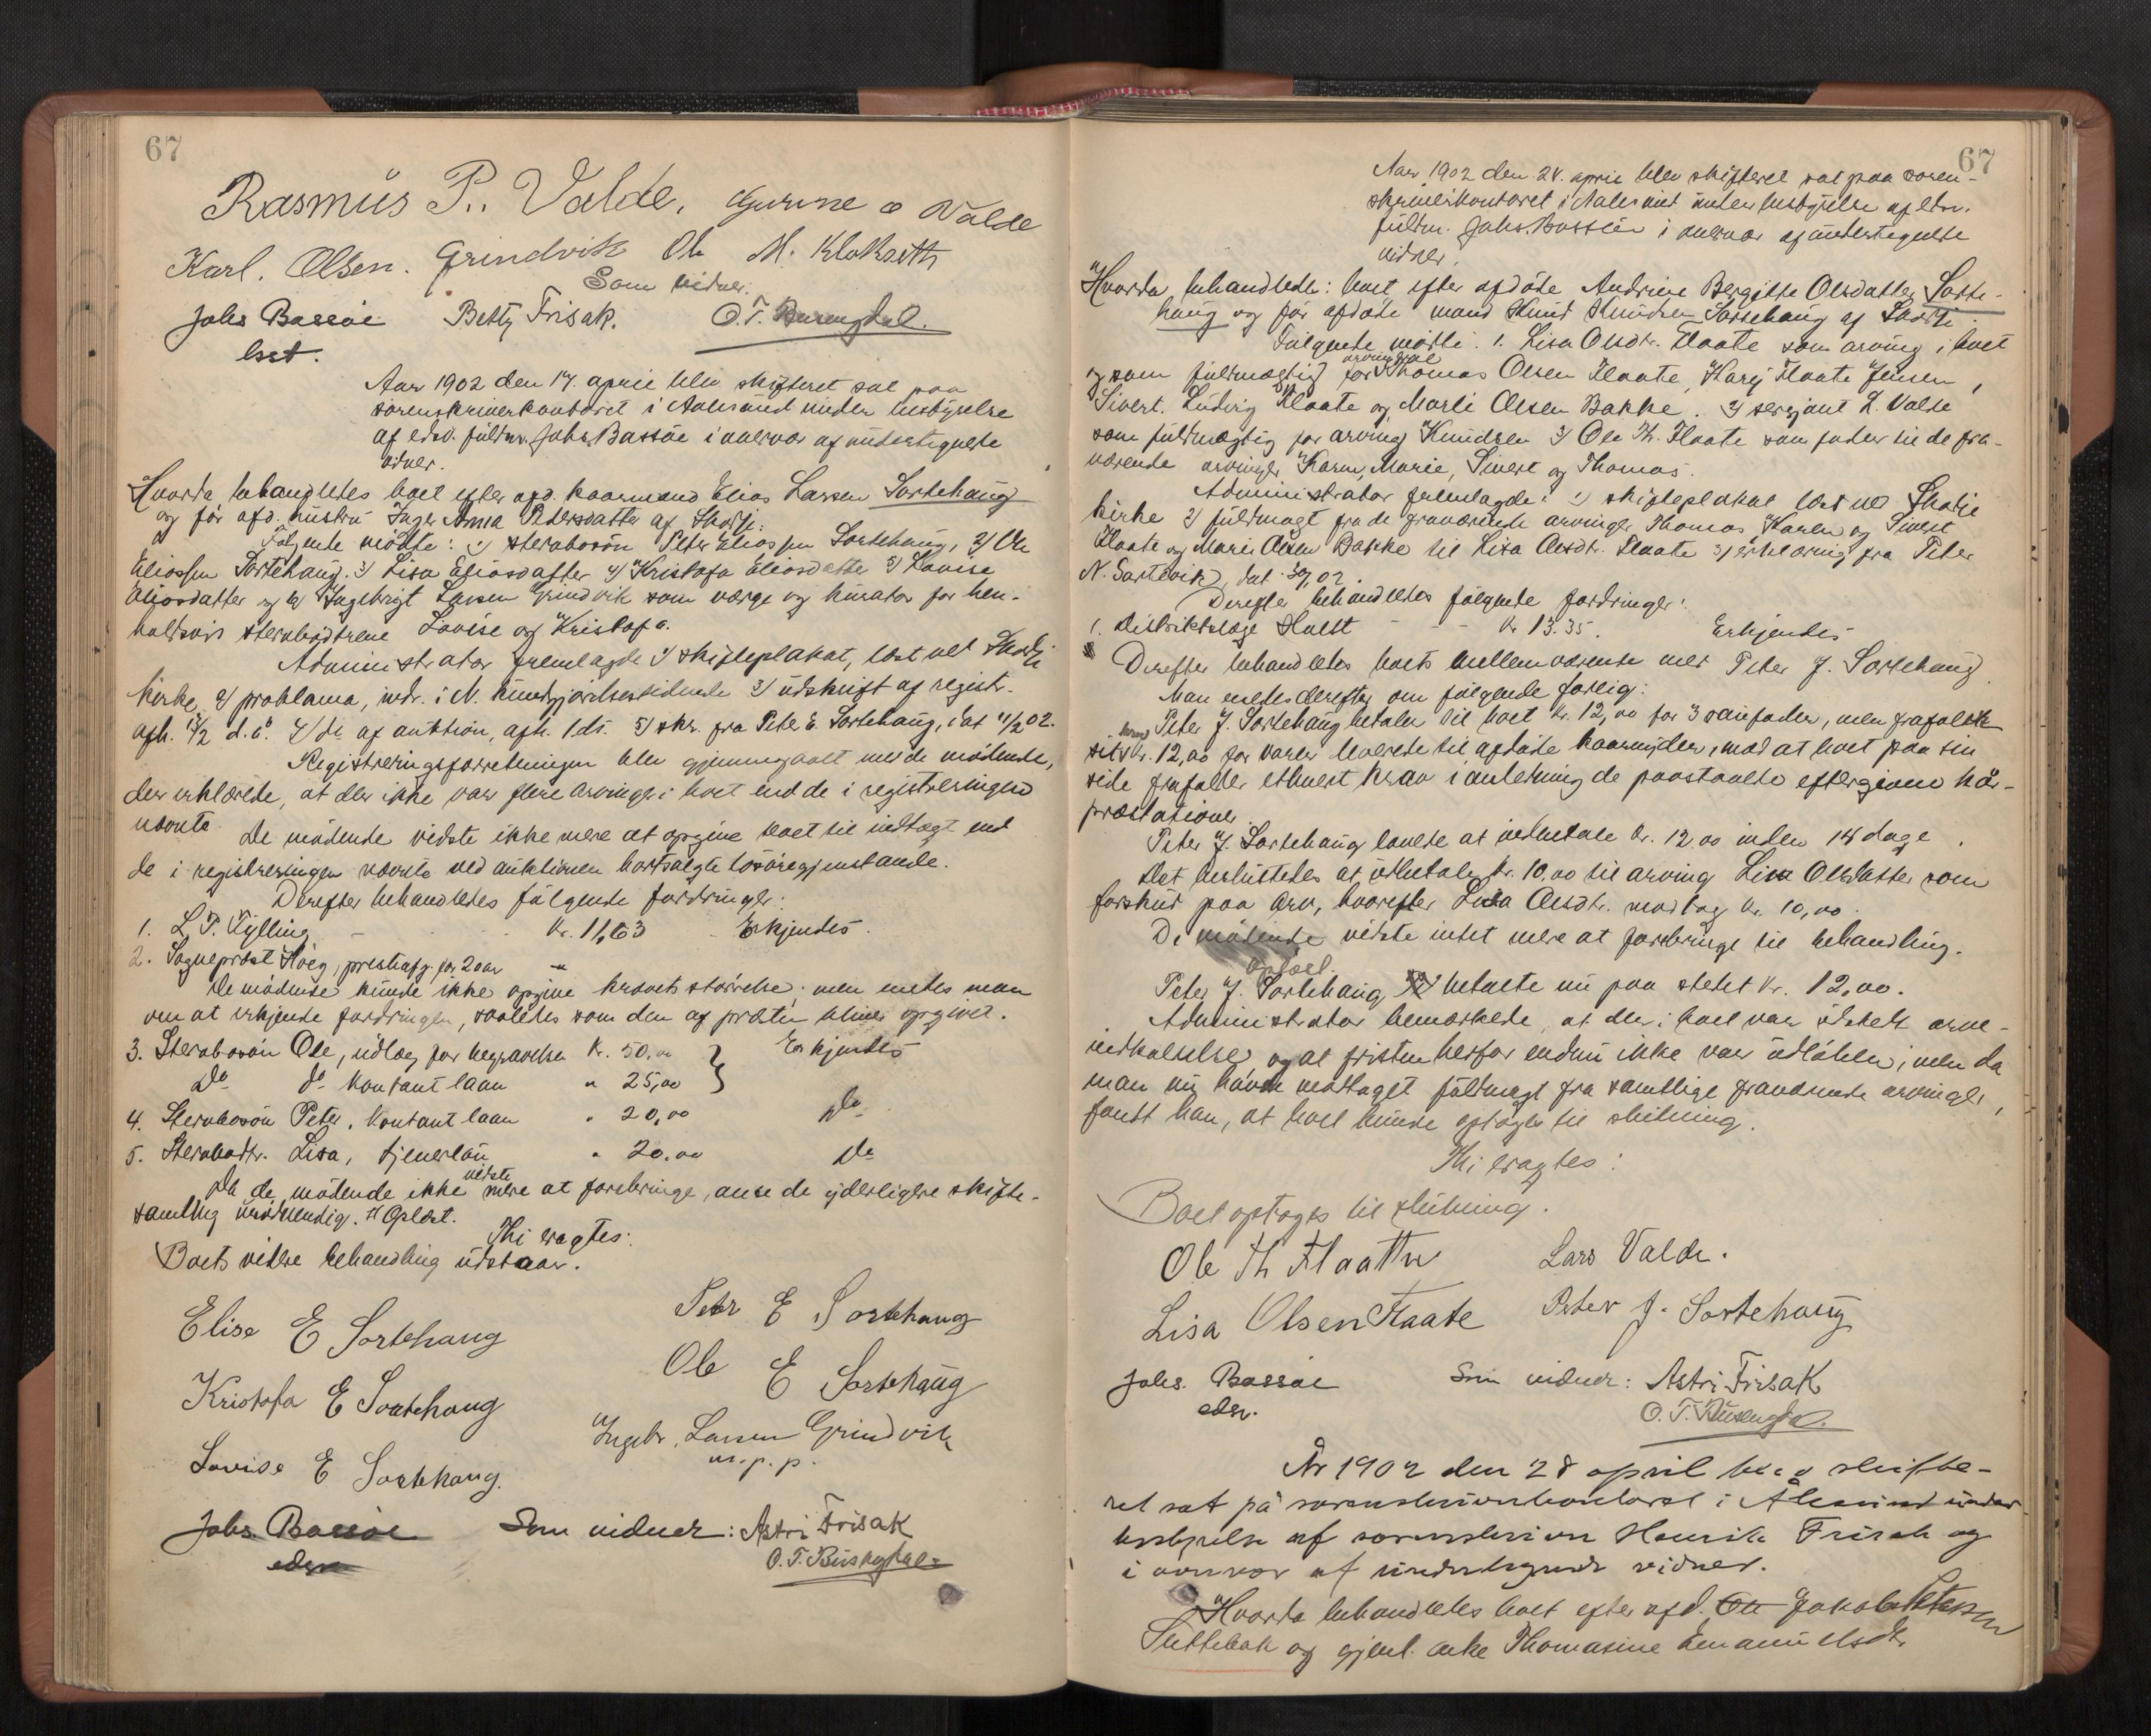 67
Rasmus P. Valde, Gurine o Valde
Karl. Olsen. Grindvik Ole M. Kloksetth
Som vidner.
Johs Bassøe Betty Frisak. O. T.
bset.
Aar 1902 den 17. april blev skifteret sat paa
sorenskriverkontoret i Aalesund under bestyrelse
af edsv. fuldm. Johs. Bassøe i overvær af undertegnede
vidner.
Hvorda behandletes boet efter afd. kaarmand Elias Larsen Sortehaug
og før afd. hustru Inger Anna Pedersdatter af Skodje.
Følgende mødte: 1) sterbosøn Peter Eliassen Sortehaug, 2) Ole
Eliassen Sortehaug. 3) Lisa Eliasdatter 4) Kristofa Eliasdatter 5) Lovise
Eliasdatter og 6) Ingebrigt Larsen Grindvik som værge og kurator for hen-
holdsvis sterbodøtrene Lovise og Kristofa.
Administrator fremlagde 1) skifteplakat, læst ved Skodje
kirke, 2) proklama, indr. i N. kundgjørelsestidende 3) udskrift af registr.
afh. 14/2 d. å. 4) do af auktion, afh. 1 ds. 5) skr. fra Peter E. Sortehaug, dat 11/2 02.
Registreringsforretningen blev gjennemgaaet med de mødende,
der erklærede, at der ikke var flere arvinger i boet end de i registreringen
nævnte.
De mødende vidste ikke mere at opgive boet til indtægt end
de i registreringen nævnte ved auktionen bortsolgte løsøregjenstande.
Derefter behandledes følgende fordringer:
1. L. P. Fylling - kr. 11,63 Erkjendes.
2. Sogneprest Høeg, prestafg. for 2 aar "
De mødende kunde ikke opgive kravets størrelse; men enedes man
om at erkjende fordringen, saaledes som den af presten bliver opgivet.
3. Sterbosøn Ole, udlæg for begravelse kr. 50,00 } Erkjendes
Do do kontant laan " 25,00
4. Sterbosøn Peter, kontant laan " 20,00 do
5. Sterbodtr. Lisa, tjenerløn " 20,00 do
Da de mødende ikke vidste mere at forebringe, ansees de yderligere skifte-
samling unødvendig. Oplæst.
Thi eragtes:
Boets videre behandling udstaar.
Elise E Sortehaug Peter E Sortehaug
Kristofa E Sortehaug Ole E Sortehaug
Lovise E Sortehaug. Ingebr. Larsen Grindvik
m. p. p.
Johs. Bassøe Som vidner: Astri Frisak
edsv O. T.
67
Aar 1902 den 24. april blev skifteret sat paa soren-
skriverkontoret i Aalesund under bestyrelse af edsv.
fuldm. Johs. Bassøe i overvær af undertegnede
vidner.
Hvorda behandledes: boet efter afdøde Andrine Bergitte Olsdatter Sorte-
haug og før afdøde mand Knud Knudsen Sortehaug af Skodje.
Følgende mødte: 1. Lisa Olsdtr. Flaate som arving i boet
og som fuldmægtig for arvingerne Thomas Olsen Flaate, Karen Flaate Jensen,
Sivert Ludvig Flaate og Marie Olsen Bakke. 2) sersjant L. Valde
som fuldmægtig for arving Knudsen 3) Ole Th. Flaate som fader til de fra-
værende arvinger Karen, Marie, Sivert og Thomas.
Administrator fremlagde: 1) skifteplakat læst ved Skodje
kirke 2) fuldmagt fra de fraværende arvinger Thomas, Karen og Sivert
Flaate og Marie Olsen Bakke til Lisa Olsdtr. Flaate 3) erklæring fra Peter
N. Sortevik, dat.
Derefter behandledes følgende fordringer:
1. Distriktslæge Holst - - kr 13.35. Erkjendes
Derefter behandledes boets mellemværende med Peter J. Sortehaug.
Man enedes derefter om følgende forlig:
Peter J. Sortehaug betaler til boet kr. 12,00 for 3 sauføder, men frafaldt
sit krav kr. 12,00 for varer leverede til afdøde kaarnyder, mod at boet paa sin
side frafalder ethvert krav i anledning de paastaaede eftergivne kår-
præstationer.
Peter J. Sortehaug lovede at indbetale kr. 12,00 inden 14 dage.
Det besluttedes at udbetale kr. 10,00 til arving Lisa Olsdatter som
forskud paa arv, hvorefter Lisa Olsdtr. modtog kr. 10,00.
De mødende vidste intet mere at forebringe til behandling.
Oplæst.
Peter J. Sortehaug betalte nu paa stedet kr. 12,00.
Administrator bemærkede, at der i boet var udstedt arve-
indkaldelse og at fristen herfor endnu ikke var udløben; men da
man nu havde modtaget fuldmagt fra samtlige fraværende arvinger,
fandt han, at boet kunde optages til slutning.
Thi eragtes:
Boet optages til slutning.
Ole Th Flaathe Lars Valde.
Lisa Olsen Flaate Peter J. Sortehaug
Johs. Bassøe Som vidner: Astri Frisak
edsv. O. T.
År 1902 den 28 april blev skifte-
ret sat på sorenskriverkontoret i Ålesund under
bestyrelse af sorenskriver Henrik Frisak og
i overvær af undertegnede vidner.
Hvorda behandletes boet efter afd. Ole Jakob
og gjenl. enke Thomasine Emanuelsdtr